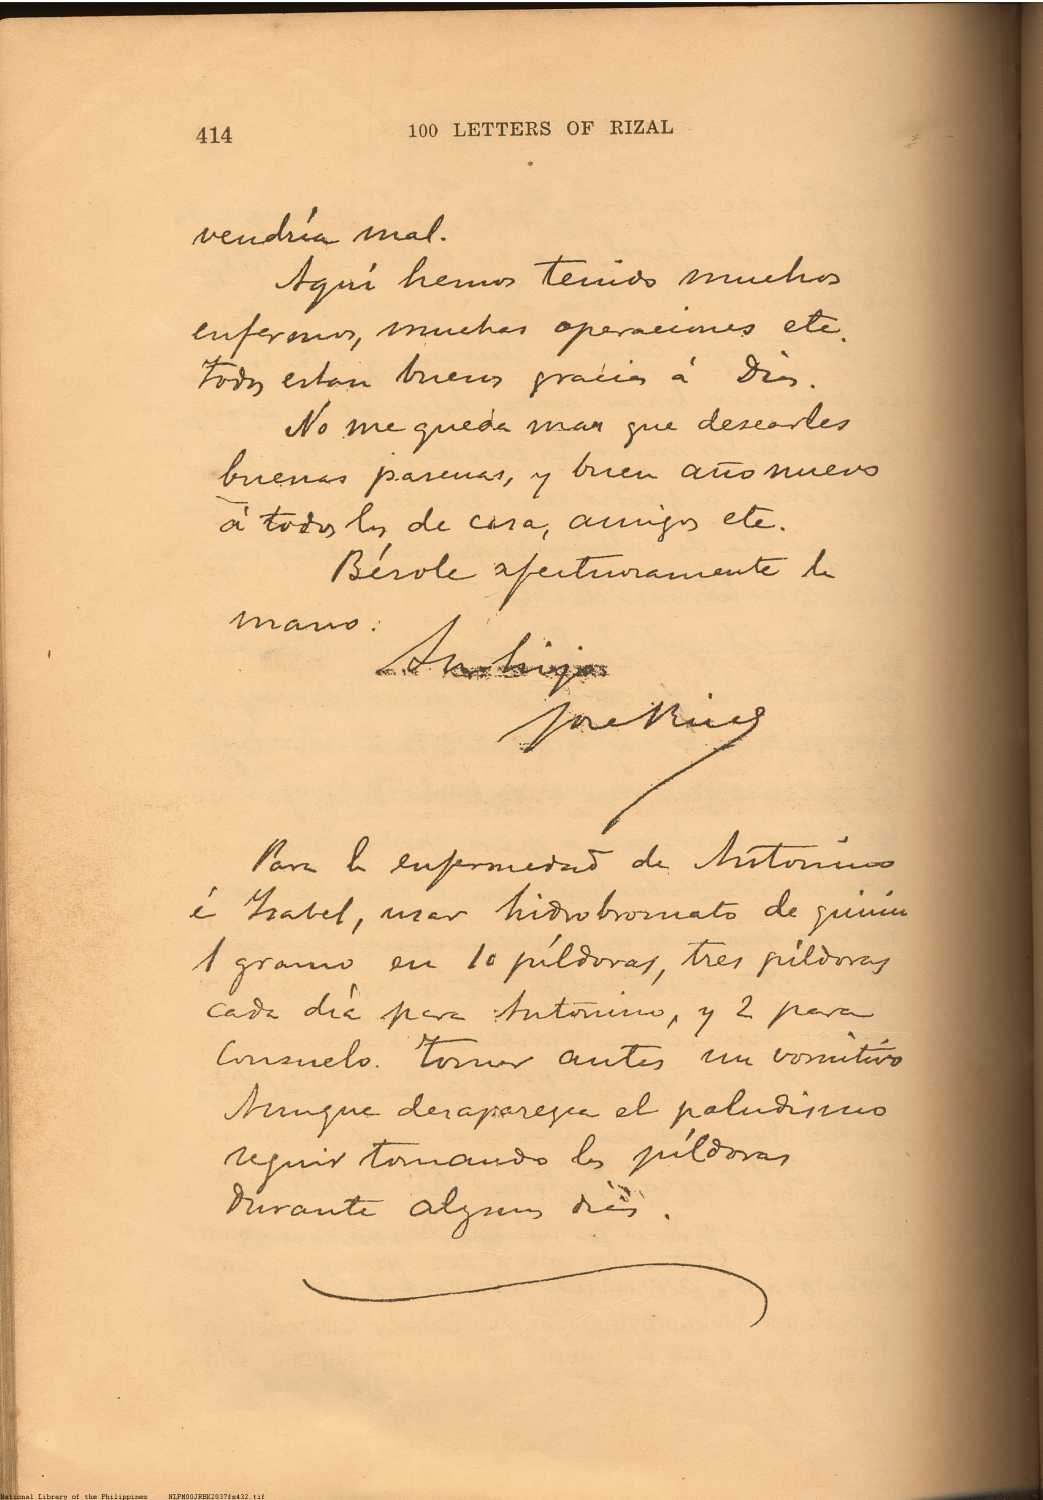 414
100 LETTERS OF RIZAL
vendría mal.
Aquí hemos tenido muchos
enfermos, muchas operaciones etc.
Todos estan buenos gracias á Dios.
No me queda mas que desearles
buenas pascuas, y buen año nuevo
á todos los de casa, amigos etc.
Bésole afectuosamente la
mano:
Su hijo
Jose Rizal
Para la enfermedad de Antonino
é Isabel, usar hidrobromato de quinina
1 gramo en 10 píldoras, tres píldoras
cada día para Antonino, y 2 para
Consuelo. Tomar antes un vomitivo
Aunque desaparezca el paludismo
seguir tomando las píldoras
durante algunos dias.
National Library of the Philippines NLPM00JRBK2037fs432.tif